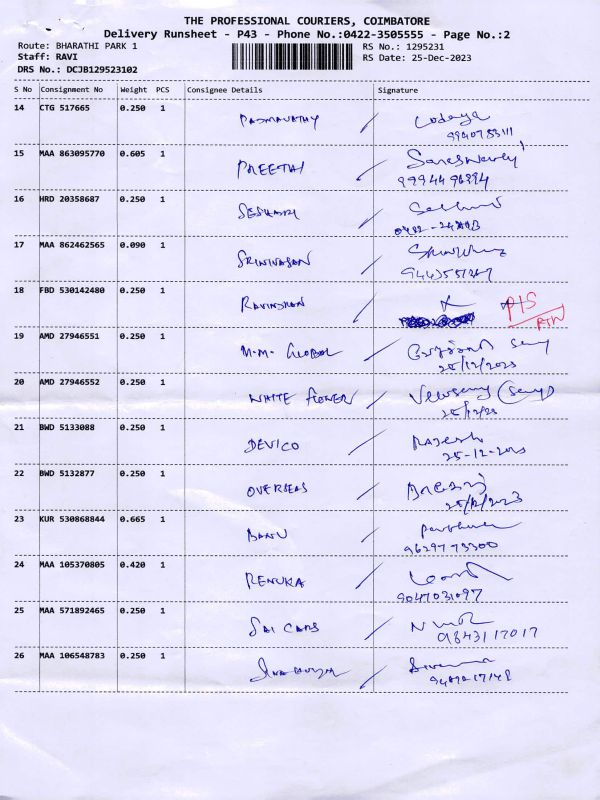 THE PROFESSIONAL COURIERS, COIMBATORE
Delivery Runsheet - P43 - Phone No.:0422-3505555 - Page No.:2
Route: BHARATHI PARK 1 RS No.: 1295231
Staff: RAVI RS Date: 25-Dec-2023
DRS No.: DCJB129523102
S No Consignment No Weight PCS Consignee Details Signature
14 CTG 517665 0.250 1 PADMAVATHY
9940753111
15 MAA 863095770 0.605 1 PREETHI
16 HRD 20358687 0.250 1 SESHADRI
17 MAA 862462565 0.090 1 SRINIVASAN
18 FBD 530142480 0.250 1 RAVINDRAN
19 AMD 27946551 0.250 1 M.M. GLOBAL
25/12/2023
20 AMD 27946552 0.250 1 WHITE FLOWER
25/12/23
21 BWD 5133088 0.250 1 DEVICO Rajesh
25-12-2023
22 BWD 5132877 0.250 1 OVERSEAS
25/12/2023
23 KUR 530868844 0.665 1 BANU
9629773300
24 MAA 105370805 0.420 1 RENUKA
9047031097
25 MAA 571892465 0.250 1 SAI CARS
9843117017
26 MAA 106548783 0.250 1